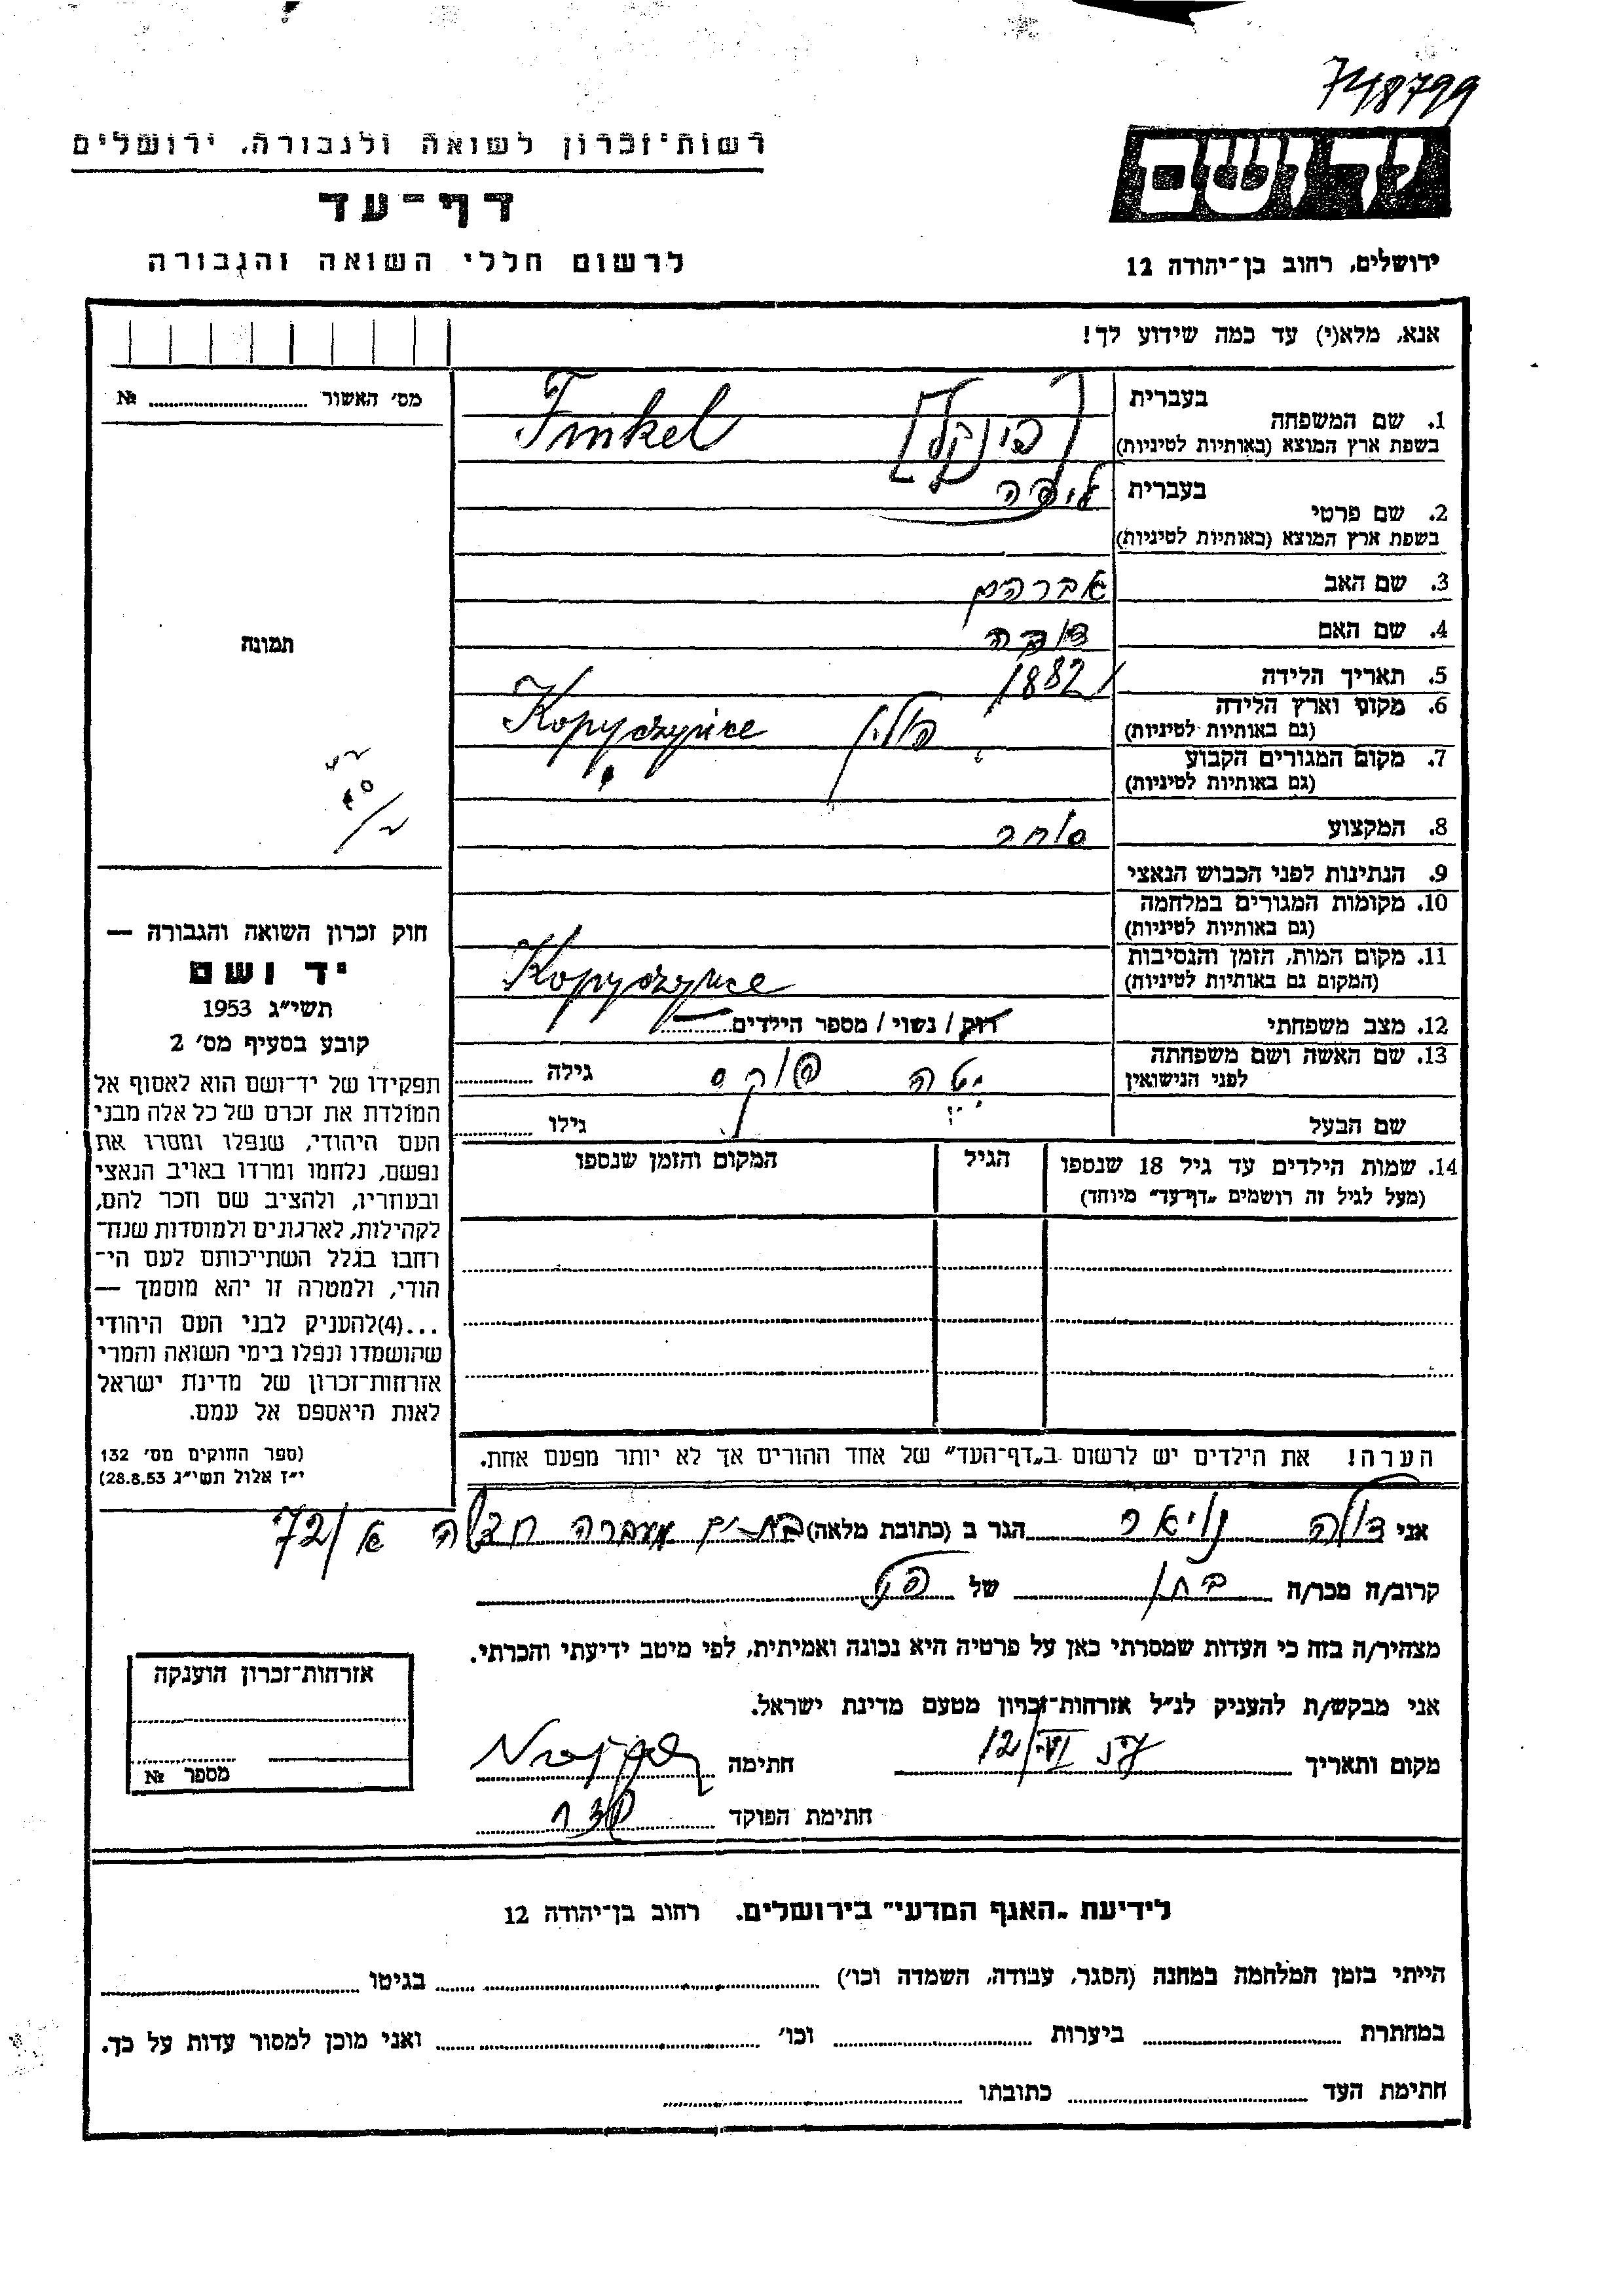 748799
רשות־זכרון לשואה ולגבורה, ירושלים
דף־עד
לרשום חללי השואה והגבורה
ידושם
ירושלים, רחוב בן־יהודה 12
אנא, מלא(י) עד כמה שידוע לך!
מס׳ האשור № 
1. שם המשפחה
בעברית
בשפת ארץ המוצא (באותיות לטיניות)
[פינקל] Finkel
2. שם פרטי
בעברית
בשפת ארץ המוצא (באותיות לטיניות)
3. שם האב אברהם
4. שם האם
5. תאריך הלידה 1882
6. מקום וארץ הלידה
(גם באותיות לטיניות)
פולין Kopyczyńce
7. מקום המגורים הקבוע
(גם באותיות לטיניות)
8. המקצוע סוחר
9. הנתינות לפני הכבוש הנאצי
10. מקומות המגורים במלחמה
(גם באותיות לטיניות)
11. מקום המות, הזמן והנסיבות
(המקום גם באותיות לטיניות)
Kopyczyńce
12. מצב משפחתי רוק / נשוי / מספר הילדים
13. שם האשה ושם משפחתה
לפני הנישואין
יטה פוקס גילה
שם הבעל גילו
14. שמות הילדים עד גיל 18 שנספו
(מעל לגיל זה רושמים „דף־עד״ מיוחד)
הגיל
המקום והזמן שנספו
הערה! את הילדים יש לרשום ב„דף־העד״ של אחד ההורים אך לא יותר מפעם אחת.
תמונה
חוק זכרון השואה והגבורה —
יד ושם
תשי״ג 1953
קובע בסעיף מס׳ 2
תפקידו של יד־ושם הוא לאסוף אל
המולדת את זכרם של כל אלה מבני
העם היהודי, שנפלו ומסרו את
נפשם, נלחמו ומרדו באויב הנאצי
ובעוזריו, ולהציב שם וזכר להם,
לקהילות, לארגונים ולמוסדות שנח־
רחבו בגלל השתייכותם לעם הי־
הודי, ולמטרה זו יהא מוסמך —
...(4)להעניק לבני העם היהודי
שהושמדו ונפלו בימי השואה והמרי
אזרחות־זכרון של מדינת ישראל
לאות היאספם אל עמם.
(ספר החוקים מס׳ 132
י״ז אלול תשי״ג 28.8.53)
אני הגר ב (כתובת מלאה) בת־ים מעברה א/72
קרוב/ה מכר/ה חתן של הנ״ל
מצהיר/ה בזה כי העדות שמסרתי כאן על פרטיה היא נכונה ואמיתית, לפי מיטב ידיעתי והכרתי.
אני מבקש/ת להעניק לנ״ל אזרחות־זכרון מטעם מדינת ישראל.
מקום ותאריך 12/VI חתימה
חתימת הפוקד
אזרחות־זכרון הוענקה
מספר №
לידיעת „האגף המדעי״ בירושלים. רחוב בן־יהודה 12
הייתי בזמן המלחמה במחנה (הסגר, עבודה, השמדה וכו׳) בגיטו
במחתרת ביערות וכו׳ ואני מוכן למסור עדות על כך.
חתימת העד כתובתו